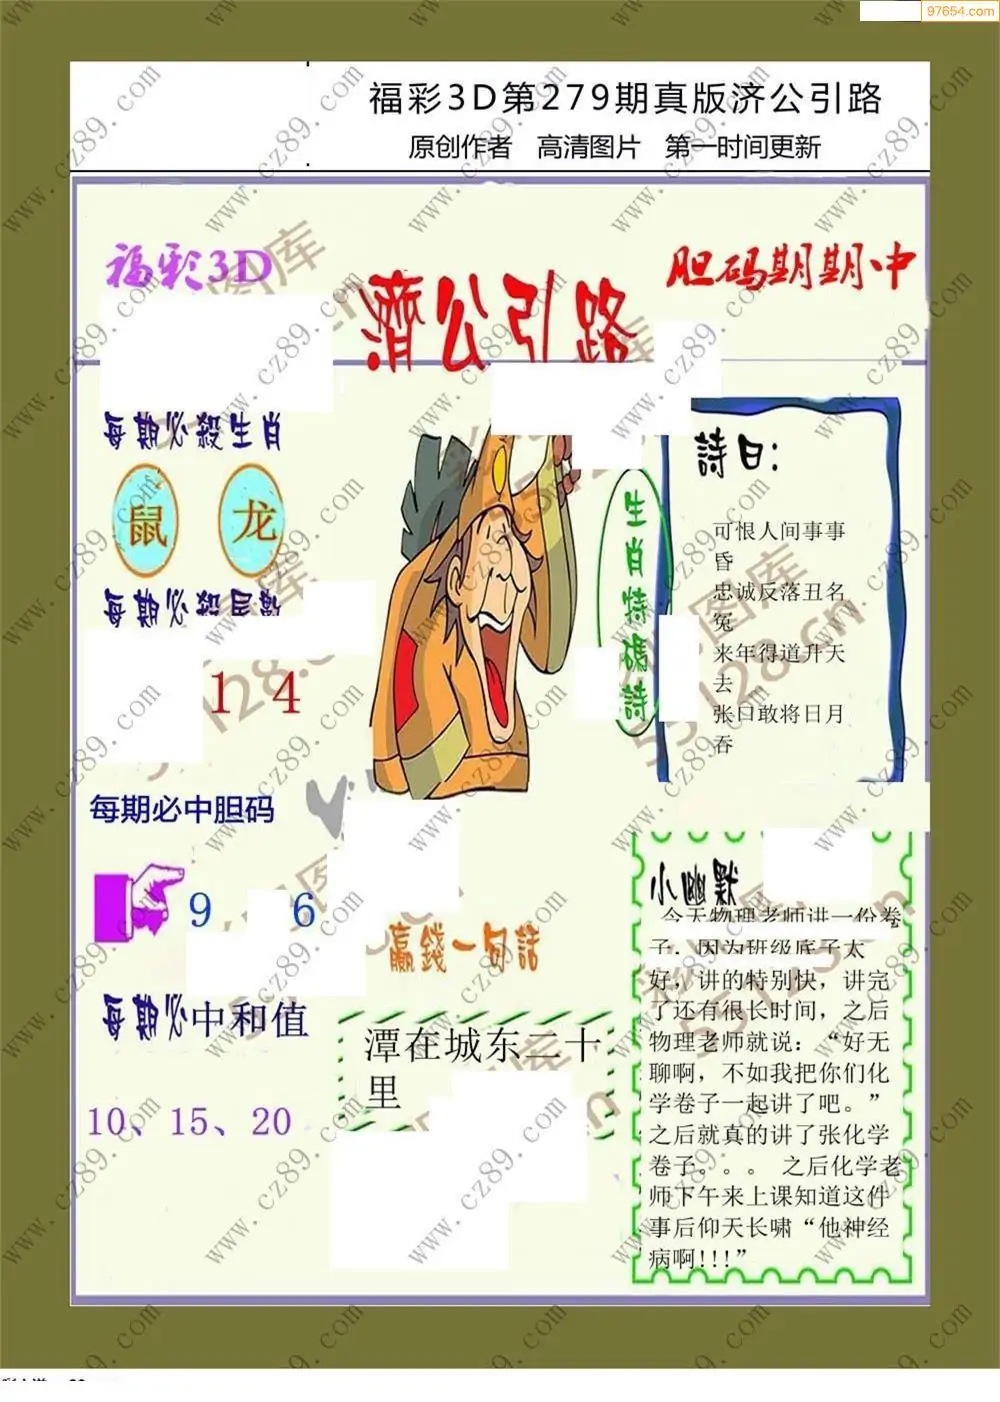 97654.com
福彩3D第279期真版济公引路
原创作者 高清图片 第一时间更新
福彩3D
濟公引路
胆码期期中
每期必殺生肖
鼠 龙
每期必殺尾數
1 4
每期必中胆码
9 6
每期必中和值
10、15、20
生肖特碼詩
詩曰:
可恨人间事事
昏
忠诚反落丑名
冤
来年得道升天
去
张口敢将日月
吞
赢錢一句話
潭在城东二十
里
小幽默
今天物理老师讲一份卷
子，因为班级底子太
好，讲的特别快，讲完
了还有很长时间，之后
物理老师就说：“好无
聊啊，不如我把你们化
学卷子一起讲了吧。”
之后就真的讲了张化学
卷子。。。 之后化学老
师下午来上课知道这件
事后仰天长啸“他神经
病啊!!!”
www.cz89.com